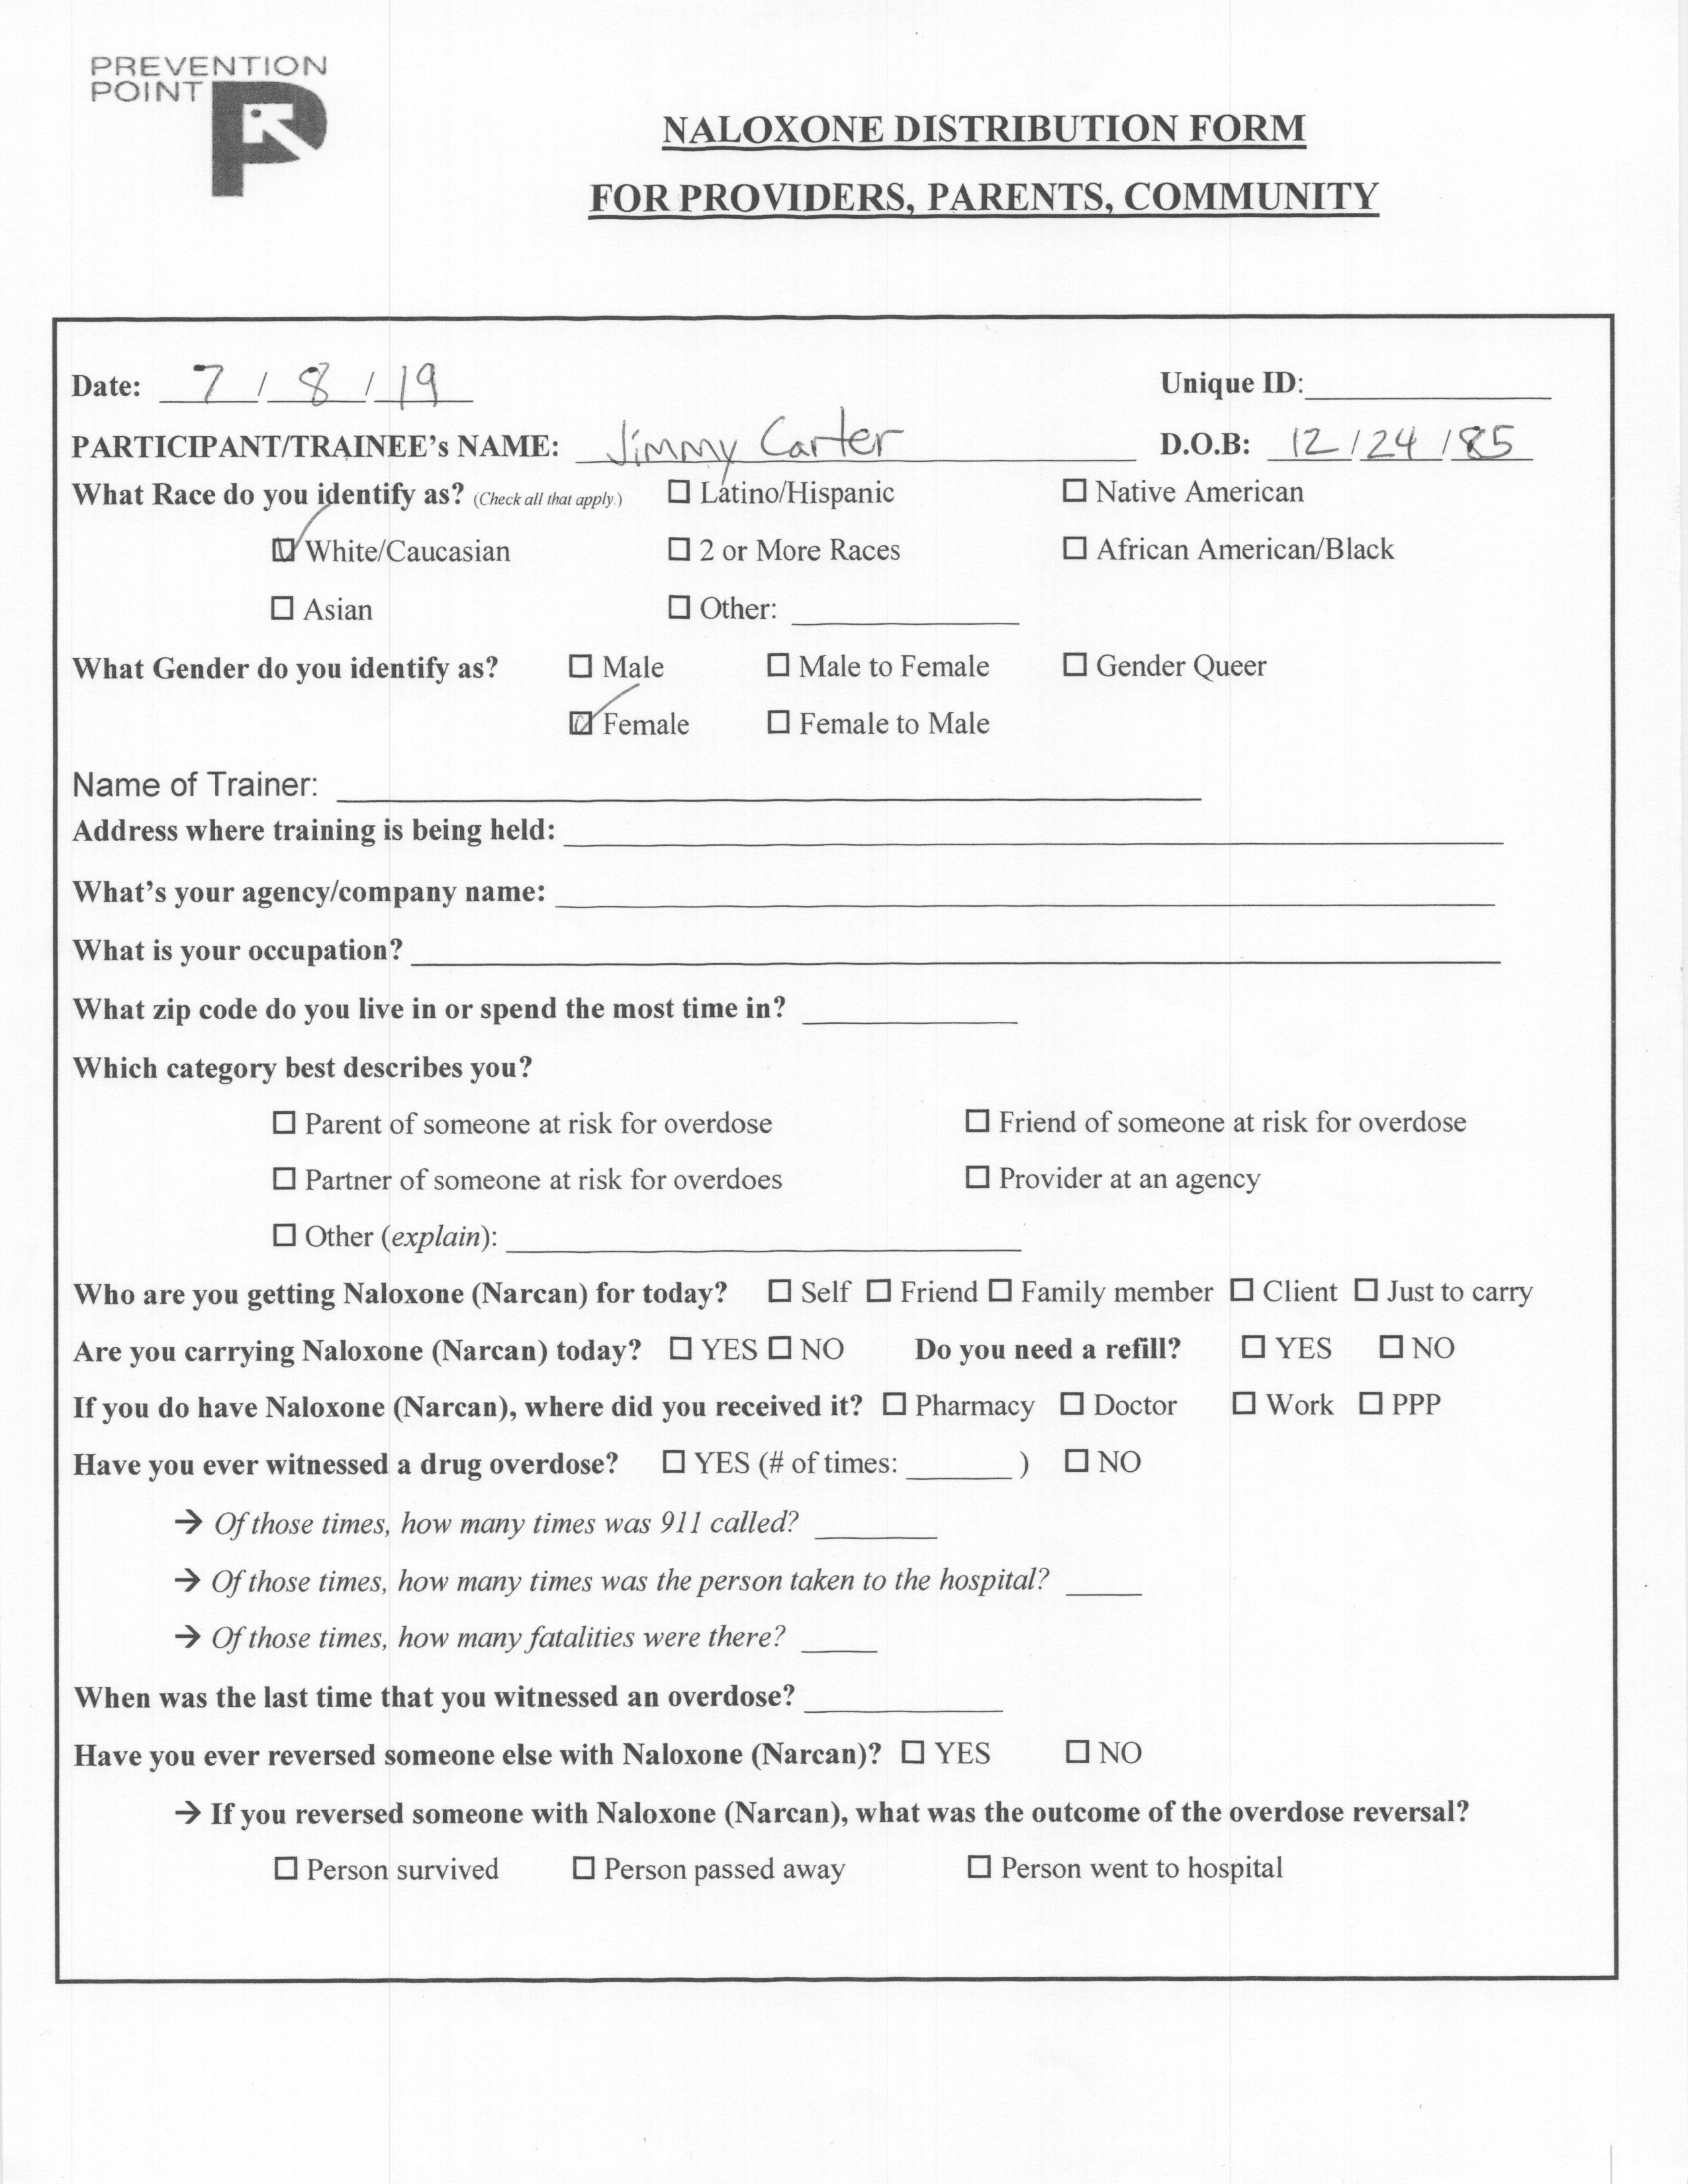 PREVENTION
POINT
NALOXONE DISTRIBUTION FORM
FOR PROVIDERS, PARENTS, COMMUNITY
Date: 7 / 8 / 19 Unique ID:
PARTICIPANT/TRAINEE's NAME: Jimmy Carter D.O.B: 12 / 24 / 85
What Race do you identify as? (Check all that apply.) ☐ Latino/Hispanic ☐ Native American
☑ White/Caucasian ☐ 2 or More Races ☐ African American/Black
☐ Asian ☐ Other:
What Gender do you identify as? ☐ Male ☐ Male to Female ☐ Gender Queer
☑ Female ☐ Female to Male
Name of Trainer:
Address where training is being held:
What's your agency/company name:
What is your occupation?
What zip code do you live in or spend the most time in?
Which category best describes you?
☐ Parent of someone at risk for overdose ☐ Friend of someone at risk for overdose
☐ Partner of someone at risk for overdoes ☐ Provider at an agency
☐ Other (explain):
Who are you getting Naloxone (Narcan) for today? ☐ Self ☐ Friend ☐ Family member ☐ Client ☐ Just to carry
Are you carrying Naloxone (Narcan) today? ☐ YES ☐ NO Do you need a refill? ☐ YES ☐ NO
If you do have Naloxone (Narcan), where did you received it? ☐ Pharmacy ☐ Doctor ☐ Work ☐ PPP
Have you ever witnessed a drug overdose? ☐ YES (# of times: ) ☐ NO
→ Of those times, how many times was 911 called?
→ Of those times, how many times was the person taken to the hospital?
→ Of those times, how many fatalities were there?
When was the last time that you witnessed an overdose?
Have you ever reversed someone else with Naloxone (Narcan)? ☐ YES ☐ NO
→ If you reversed someone with Naloxone (Narcan), what was the outcome of the overdose reversal?
☐ Person survived ☐ Person passed away ☐ Person went to hospital